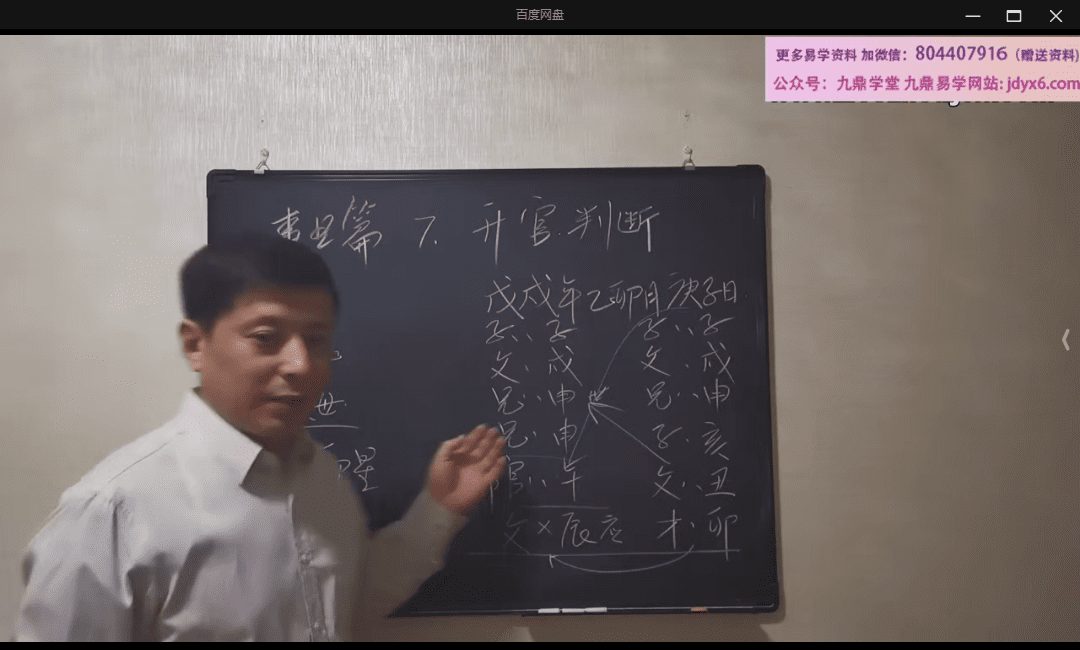 百度网盘
更多易学资料 加微信：804407916（赠送资料）
公众号：九鼎学堂 九鼎易学网站: jdyx6.com
篇 7. 开官判断
戊戌年乙卯月庚子日
子、、子 子、、子
父、戌 父、戌
兄、、申 兄、、申
兄、申 子、亥
、、午 父、、丑
父×辰应 才、卯
世
星